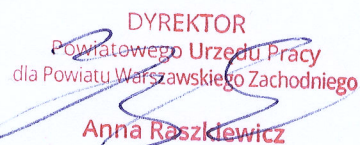 DYREKTOR
Powiatowego Urzędu Pracy
dla Powiatu Warszawskiego Zachodniego
Anna Raszkiewicz